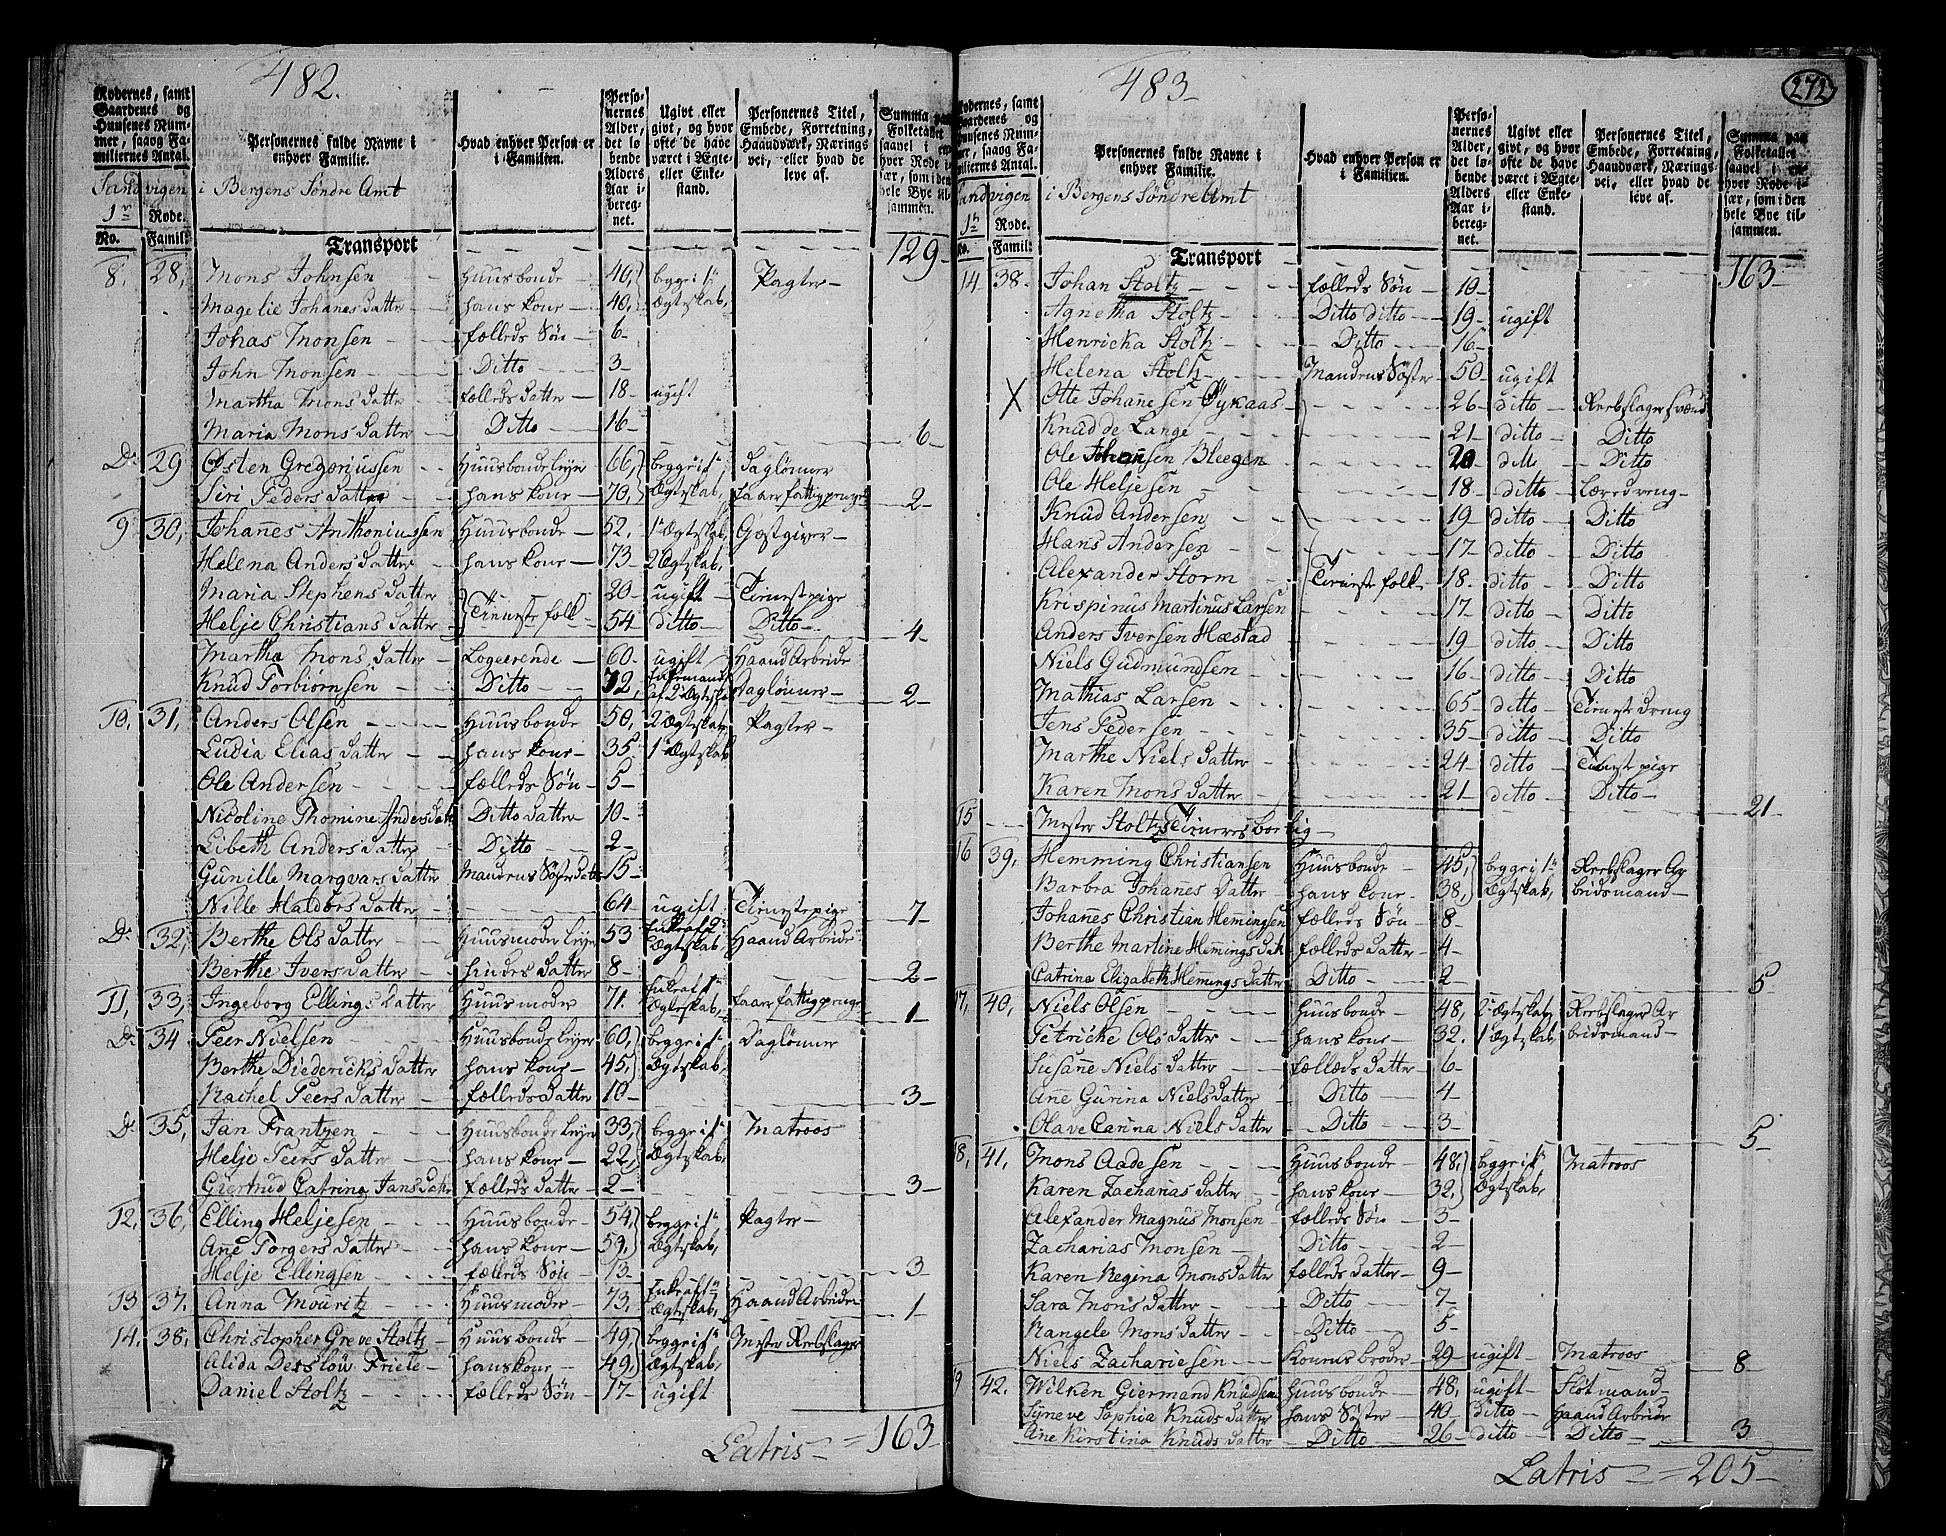 482.
Rodernes, samt Gaardenes og Huusenes Nummer, saaog Familiernes Antal.
Personernes fulde Navne i enhver Familie.
Hvad enhver Person er i Familien.
Personernes Alder, det løbende Alders Aar iberegnet.
Ugivt eller givt, og hvor ofte de have været i Ægte- eller Enkestand.
Personernes Titel, Embede, Forretning, Haandværk, Næringsvei, eller hvad de leve af.
Summa paa Folketallet saavel i enhver Rode især, som i den hele Bye tilsammen.
Sandvigen i Bergens Søndre Amt
1n Rode.
No. Famil:
Transport 129
8. 28, Mons Johnsen Huusbonde 40, begge i 1te Pagter
Magelie Johanes Datter hans kone 40, Ægteskab,
Johas Monsen fælleds Søn 6
John Monsen Ditto 3
Martha Mons Datter fælleds Datter 18 ugift
Maria Mons Datter Ditto 16 6
Do 29 Østen Gregoriussen Huusbonde leyer 66, begge i 1te Daglønner
Siri Peders Datter hans kone 70, Ægteskab, faaer fattigpenge 2
9 30, Johanes Anthoniussen Huusbonde 52. 1te Ægteskab, Gæstgiver
Helena Anders Datter hans kone 73 2 Ægteskab,
Maria Stephens Datter Tieneste folk 20 ugift Tienestepige
Helje Christians Datter 54 ditto Ditto 4
Martha Mons Datter Logeerende 60 ugift Haand Arbeide
Knud Torbiørnsen Ditto 72, Enkemand af 2 Ægteskab Daglønner 2
10, 31, Anders Olsen Huusbonde 50, 2 Ægteskab, Pagter
Ludia Elias Datter hans kone 35 1te Ægteskab
Ole Andersen fælleds Søn 5
Nicoline Thomine Anders Datt Ditto Datter 10
Lisbeth Anders Datter Ditto 2
Gunille Marqvars Datter Mandens Søster Datter 15
Nille Haldors Datter 64 ugift Tienestepige 7
Do 32, Berthe Ols Datter Huusmoder leyer 53 Enke af 2 Ægteskab, Haand Arbeide
Berthe Ivers Datter hindes Datter 8 2
11, 33, Ingeborg Ellings Datter Huusmoder 71. Enke af 1te Ægteskab, faaer fattigpenge 1
Do 34 Peer Nielsen Huusbonde leyer 60, begge i 1te Daglønner
Berthe Diedericks Datter hans kone 45, Ægteskab,
Rachel Peers Datter fælleds Datter 10 3
Do 35, Jan Frantzen Huusbonde leyer 33, begge i 1te Matroos
Helje Peers Datter hans kone 22, Ægteskab,
Giertrud Catrina Jans Datter fælleds Datter 2 3
12, 36, Elling Heljesen Huusbonde 54, begge i 1te Pagter
Ane Torgers Datter hans kone 59, Ægteskab,
Helje Ellingsen fælleds Søn 13 3
13 37. Anna Mouritz Huusmoder 73, Enke af 1te Ægteskab, Haand Arbeide 1
14. 38, Christopher Greve Stoltz Huusbonde 49, begge i 1te Mester Reebslager
Alida Desslow Friele hans kone 49, Ægteskab,
Daniel Stoltz fælleds Søn 17 ugift
Latris 163
483
272
Rodernes, samt Gaardenes og Huusenes Nummer, saaog Familiernes Antal.
Personernes fulde Navne i enhver Familie.
Hvad enhver Person er i Familien.
Personernes Alder, det løbende Alders Aar iberegnet.
Ugivt eller givt, og hvor ofte de have været i Ægte- eller Enkestand.
Personernes Titel, Embede, Forretning, Haandværk, Næringsvei, eller hvad de leve af.
Summa paa Folketallet saavel i enhver Rode især, som i den hele Bye tilsammen.
Sandvigen i Bergens Søndre Amt
1n Rode.
No. Famil:
Transport 163
14 38. Johan Stoltz fælleds Søn 10
Agnetha Stoltz Ditto Ditto 19 ugift
Henricka Stoltz Ditto 16
Helena Stoltz Mandens Søster 50 ugift
X Otte Johanesen Øykaas 26 ditto Reebslager svend
Knud de Lange 21 ditto Ditto
Ole Johansen Bleegen 20 ditto Ditto
Ole Heljesen 18 ditto Læredreng
Knud Andersen 19 ditto Ditto
Hans Andersen 17 ditto Ditto
Alexander Storm Tieneste folk 18. ditto Ditto
Krispinus Martinus Larsen 17 ditto Ditto
Anders Iversen Hæstad 19 ditto Ditto
Niels Gudmundsen 16 ditto Ditto
Mathias Larsen 65 ditto Tieneste dreng
Jens Pedersen 35 ditto Ditto
Marthe Niels Datter 24 ditto Tieneste pige
Karen Mons Datter 21 ditto Ditto 21
15 Mester Stoltzes Tieneres boelig
16 39, Hemming Christiansen Huusbonde 45, begge i 1te Reebslager Ar
Barbra Johanes Datter hans kone 38, Ægteskab, bidsmand
Johanes Christian Hemingsen fælleds Søn 8
Berthe Martine Hemings Datt fælleds Datter 4
Catrina Elizabeth Hemings Datter Ditto 2 5
17, 40, Niels Olsen Huusbonde 48, 2t Ægteskab, Reebslager Ar
Petricke Ols Datter hans kone 32. 1 Ægteskab, bidsmand
Susane Niels Datter fælleds Datter 6
Ane Gurina Niels Datter Ditto 4
Olave Carina Niels Datter Ditto 3 5
18, 41, Mons Aadesen Huusbonde 48, begge i 1te Matroos
Karen Zacharias Datter hans kone 32, Ægteskab,
Alexander Magnus Monsen fælleds Søn 3
Zacharias Monsen Ditto 2
Karen Regina Mons Datter fælleds Datter 9
Sara Mons Datter Ditto 7
Rangele Mons Datter Ditto 5
Niels Zachariesen Konens broder 29 ugift Matroos 8
19 42. Wilken Giermand Knudsen Huusbonde 48, ugift Flotmand
Syneve Sophia Knuds Datter hans Søster 40 ditto Haand Arbeide
Ane Kirstina Knuds Datter Ditto 26 ditto Ditto 3
Latris 205